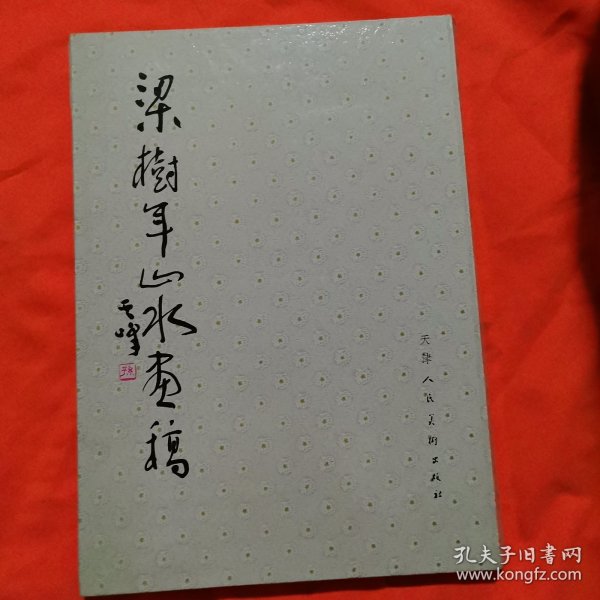 梁樹年山水画稿
天津人民美術出版社
孔夫子旧書网
www.kongfz.com